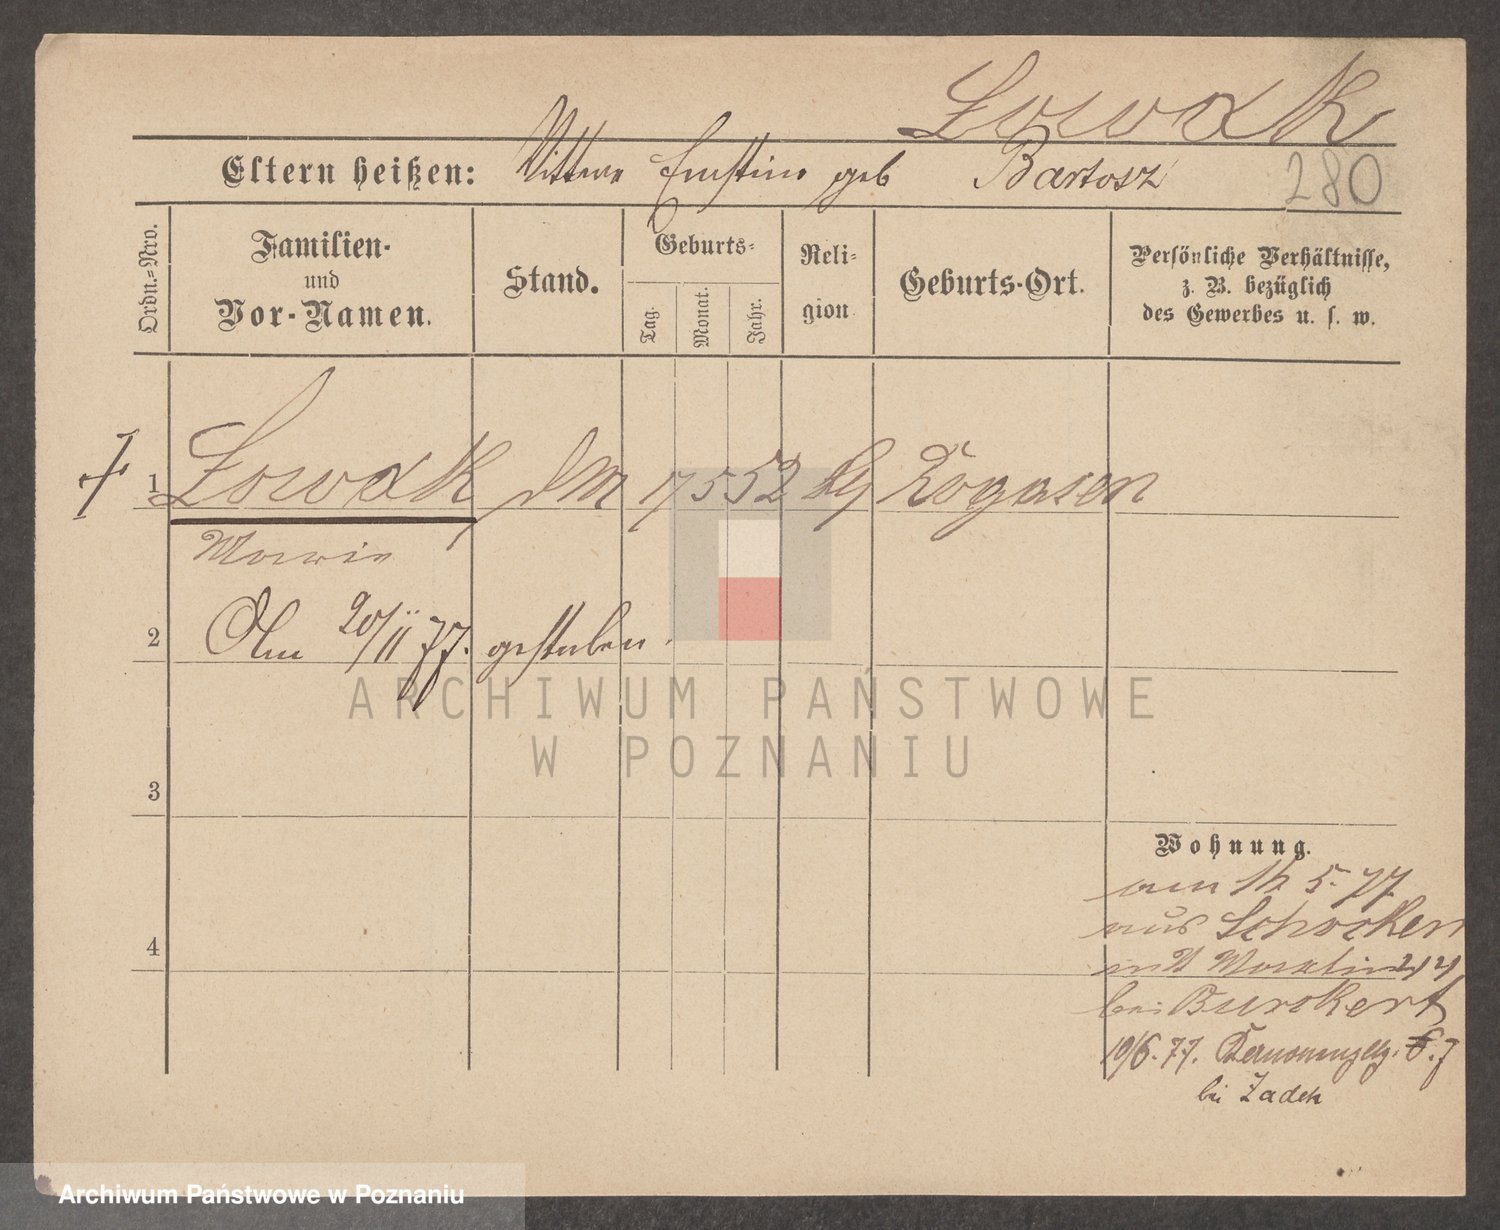 Łowak
Eltern heißen: Ernstine geb Bartosz
280
Ordn.=Nro.
Familien- und Vor-Namen.
Stand.
Geburts=
Tag. Monat. Jahr.
Reli= gion
Geburts-Ort.
Persönliche Verhältnisse, z. B. bezüglich des Gewerbes u. s. w.
1 Łowak, DM 17 5 52 Rogasen
Marie
2 Am 20/11 77. gestorben.
3
Wohnung.
am 5. 77.
aus Schocken
4
bei Burckert
19/6. 77.
bei Zadek
ARCHIWUM PAŃSTWOWE
W POZNANIU
Archiwum Państwowe w Poznaniu